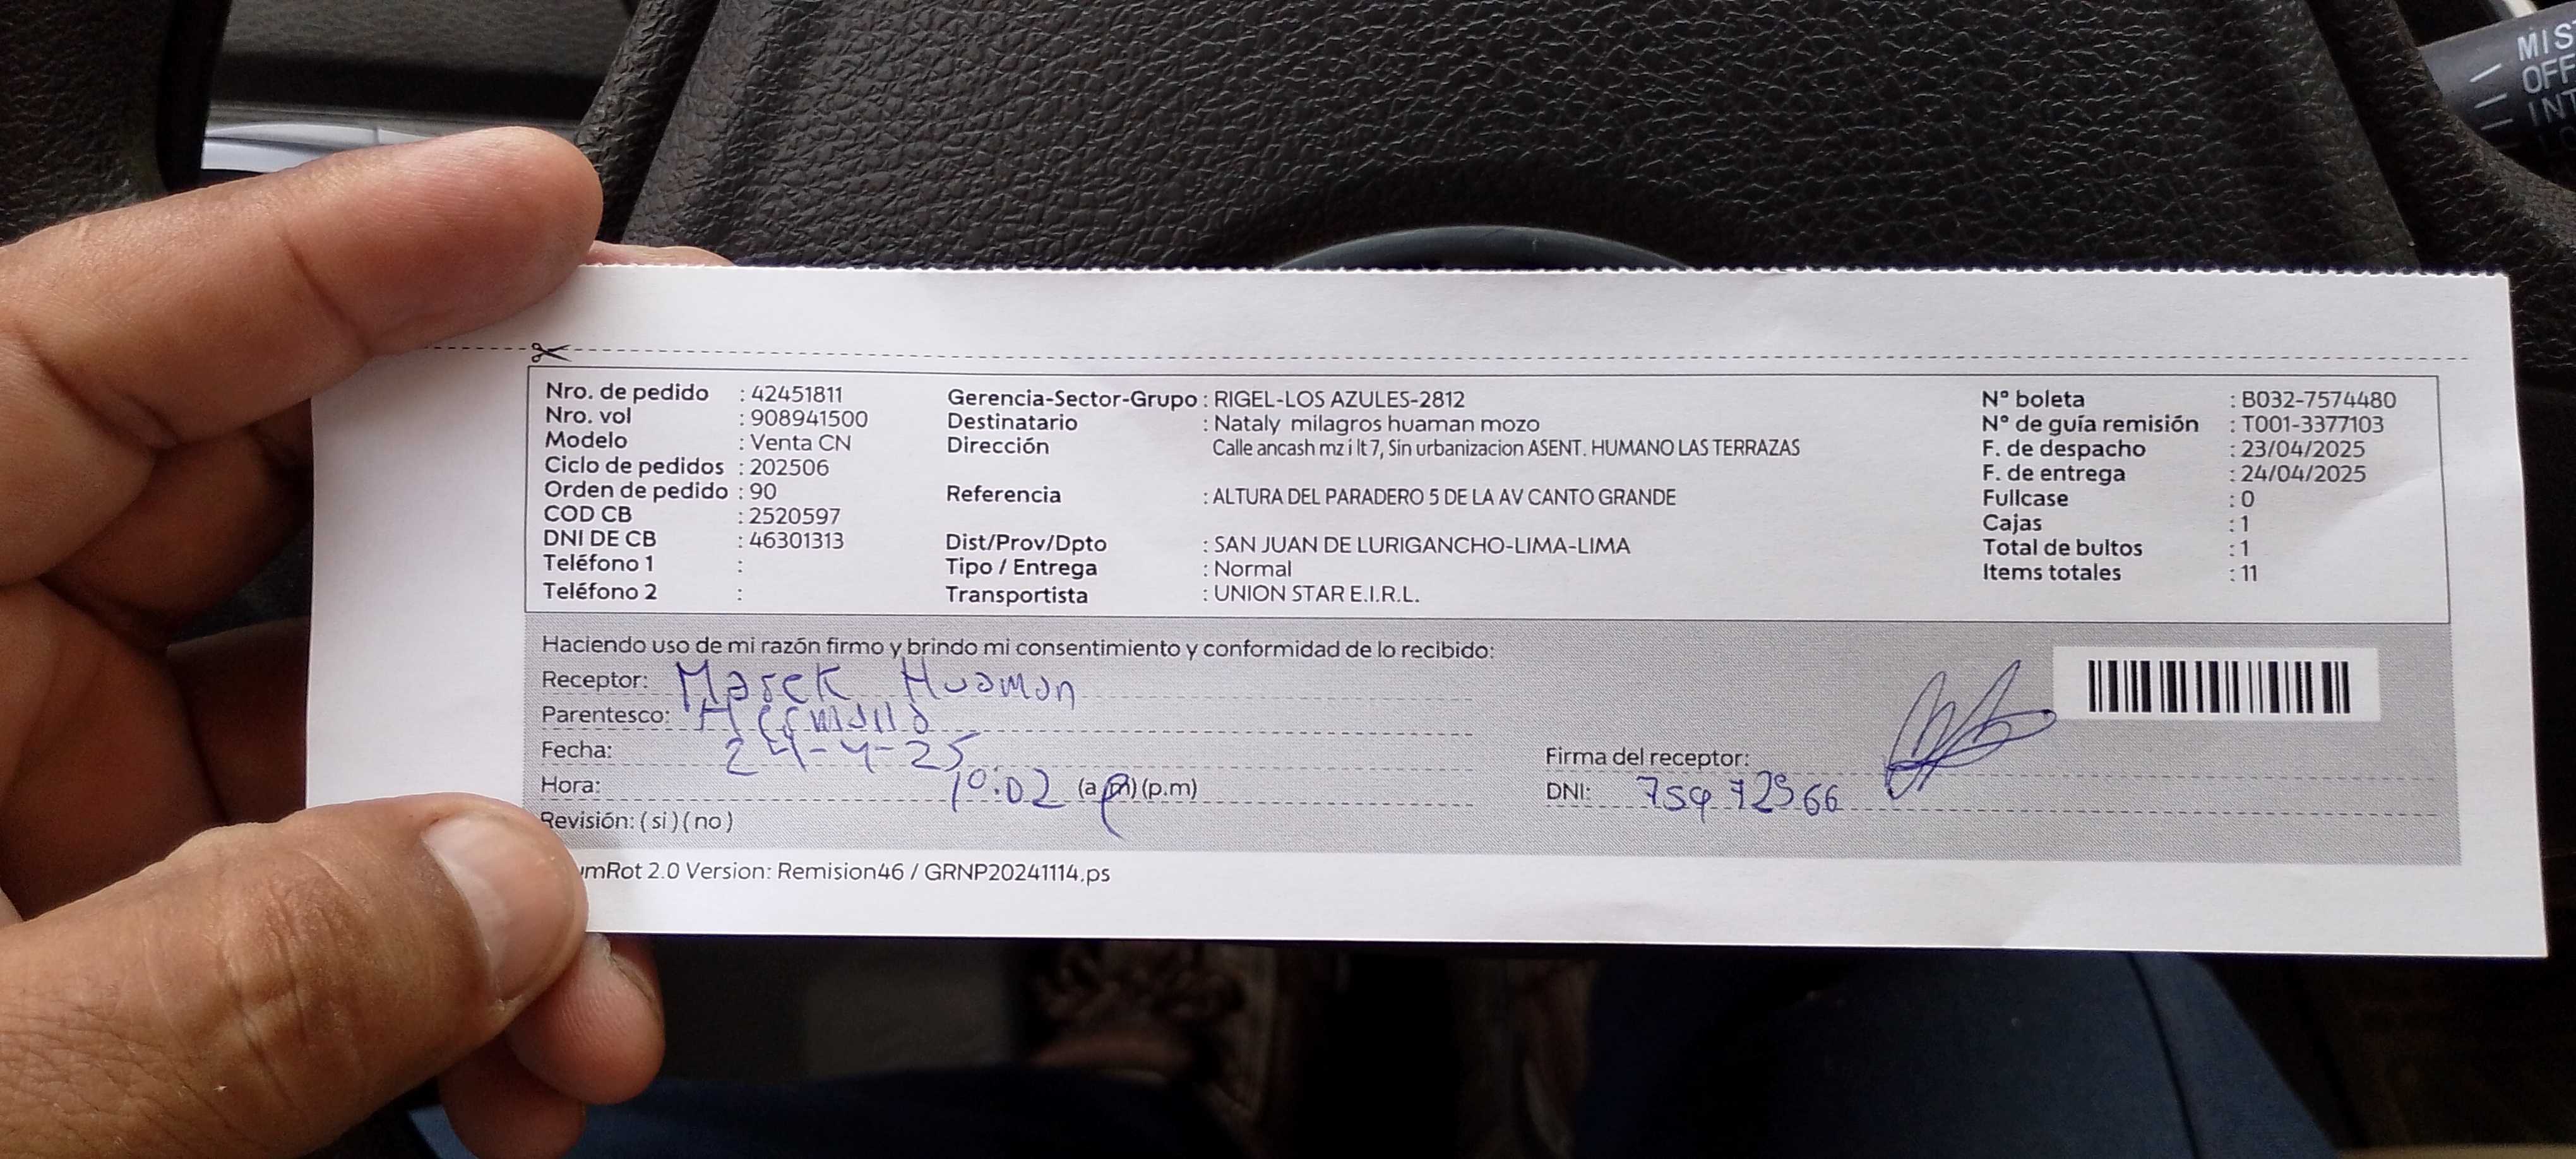 MIS
OFF
INT
Nro. de pedido : 42451811
Nro. vol : 908941500
Modelo : Venta CN
Ciclo de pedidos : 202506
Orden de pedido : 90
COD CB : 2520597
DNI DE CB : 46301313
Teléfono 1 :
Teléfono 2 :
Gerencia-Sector-Grupo : RIGEL-LOS AZULES-2812
Destinatario : Nataly milagros huaman mozo
Dirección Calle ancash mz i lt 7, Sin urbanizacion ASENT. HUMANO LAS TERRAZAS
Referencia : ALTURA DEL PARADERO 5 DE LA AV CANTO GRANDE
Dist/Prov/Dpto : SAN JUAN DE LURIGANCHO-LIMA-LIMA
Tipo / Entrega : Normal
Transportista : UNION STAR E.I.R.L.
N° boleta : B032-7574480
N° de guía remisión : T001-3377103
F. de despacho : 23/04/2025
F. de entrega : 24/04/2025
Fullcase : 0
Cajas : 1
Total de bultos : 1
Items totales : 11
Haciendo uso de mi razón firmo y brindo mi consentimiento y conformidad de lo recibido:
Receptor: Marek Huaman
Parentesco: Hermano
Fecha: 24-4-25
Hora: 10:02 (a.m) (p.m)
Revisión: ( si ) ( no )
Firma del receptor:
DNI:
mRot 2.0 Version: Remision46 / GRNP20241114.ps